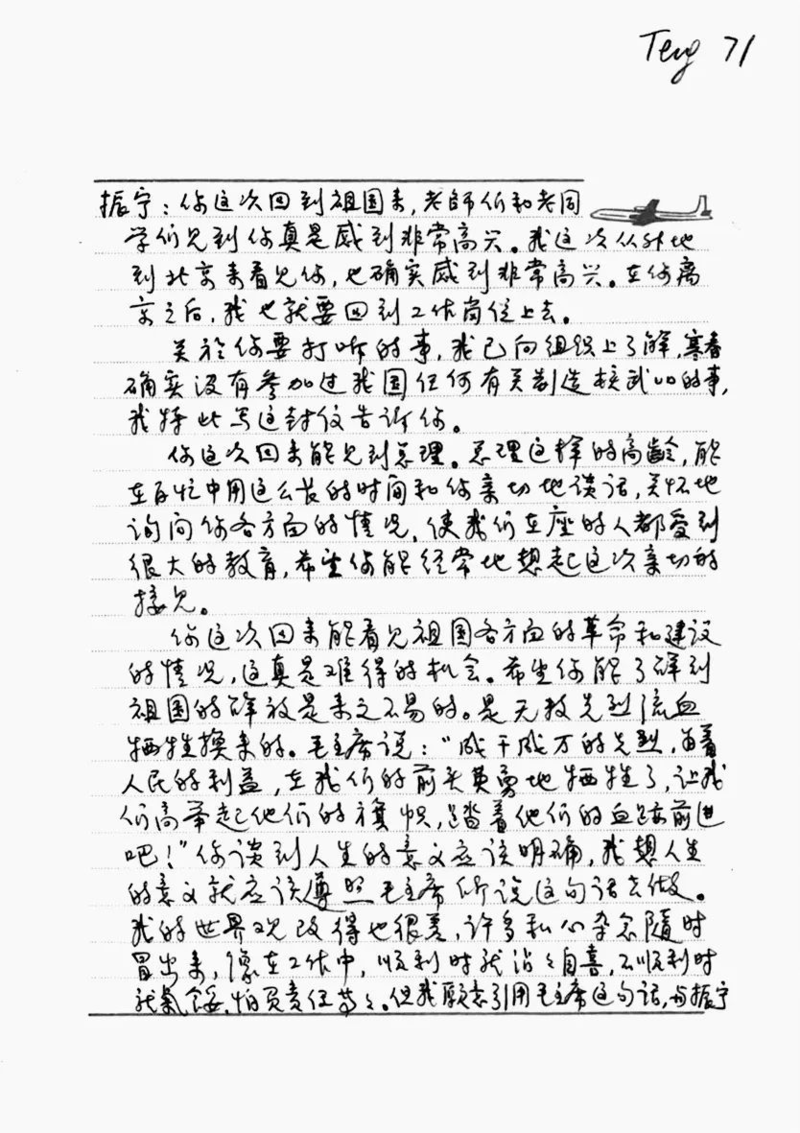 Teng 71
振宁：你这次回到祖国来，老師们和老同
学们见到你真是感到非常高兴。我这次从外地
到北京来看见你，也确实感到非常高兴。在你离
京之后，我也就要回到工作岗位上去。
关於你要打听的事，我已向组织上了解，寒春
确实没有参加过我国任何有关制造核武口的事，
我特此写这封信告诉你。
你这次回来能见到总理。总理这样的高齡，能
在百忙中用这么长的时间和你亲切地谈话，关怀地
询问你各方面的情况，使我们在座的人都受到
很大的教育，希望你能经常地想起这次亲切的
接见。
你这次回来能看见祖国各方面的革命和建设
的情况，这真是难得的机会。希望你能了解到
祖国的解放是来之不易的。是无数先烈流血
牺牲换来的。毛主席说：“成千成万的先烈，为着
人民的利益，在我们的前头英勇地牺牲了，让我
们高举起他们的旗帜，踏着他们的血迹前进
吧！”你谈到人生的意义应该明确，我想人生
的意义就应该遵照毛主席所说这句话去做。
我的世界观改得也很差，许多私心杂念随时
冒出来，像在工作中，顺利时就沾沾自喜，不顺利时
就氣馁，怕负责任等等。但我愿意引用毛主席这句话，与振宁